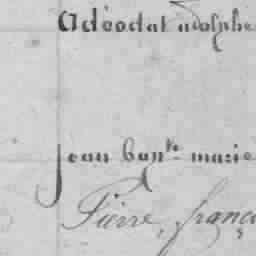 Adéodat adolphe
jean bapte marie
Pierre, franç